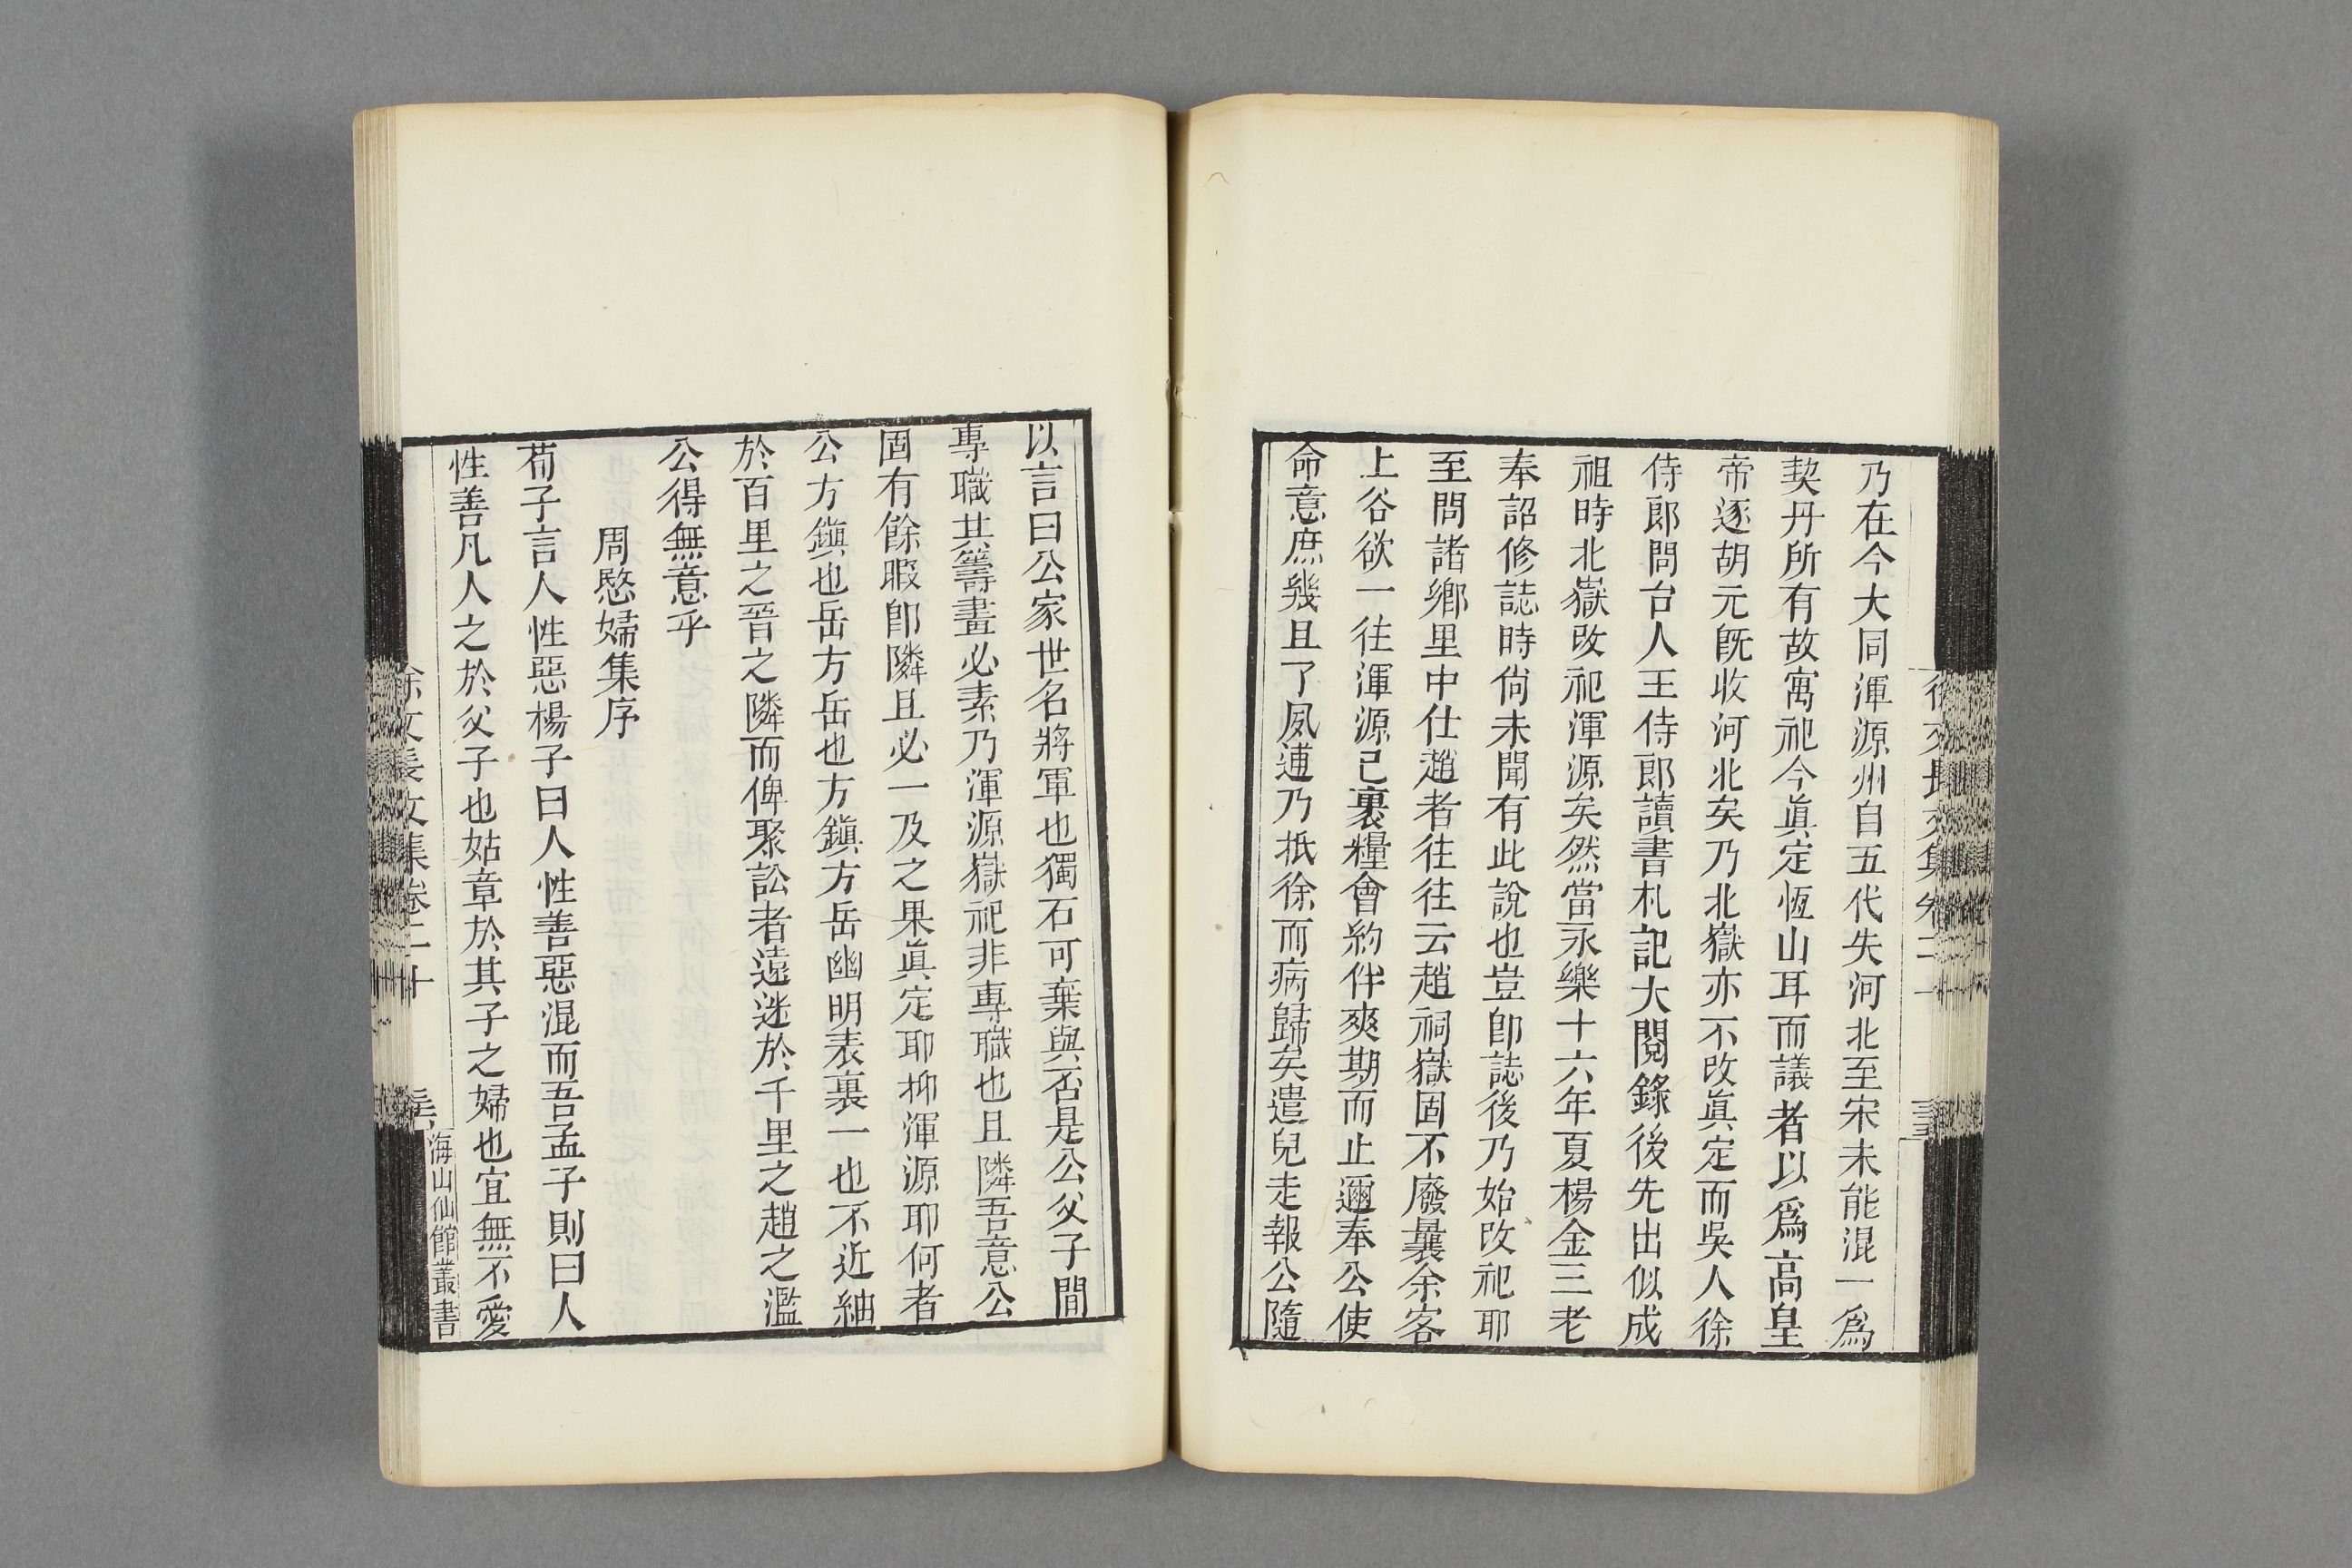 乃在今大同渾源州自五代失河北至宋未能混一爲
契丹所有故寓祀今眞定恆山耳而議者以爲高皇
帝逐胡元旣收河北矣乃北嶽亦不改眞定而吳人徐
侍郎問台人王侍郎讀書札記大閱錄後先出似成
祖時北嶽改祀渾源矣然當永樂十六年夏楊金三老
奉詔修誌時尙未聞有此說也豈卽誌後乃始改祀耶
至問諸鄉里中仕趙者往往云趙祠嶽固不廢曩余客
上谷欲一往渾源已裹糧會約伴爽期而止邇奉公使
命意庶幾且了夙逋乃抵徐而病歸矣遣兒走報公隨
以言曰公家世名將軍也獨石可棄與否是公父子間
專職其籌畫必素乃渾源嶽祀非專職也且隣吾意公
固有餘暇卽隣且必一及之果眞定耶抑渾源耶何者
公方鎭也岳方岳也方鎭方岳幽明表裏一也不近紬
於百里之晉之隣而俾聚訟者遠迷於千里之趙之濫
公得無意乎
周愍婦集序
荀子言人性惡楊子曰人性善惡混而吾孟子則曰人
性善凡人之於父子也姑章於其子之婦也宜無不愛
徐文長文集卷二十
海山仙館叢書